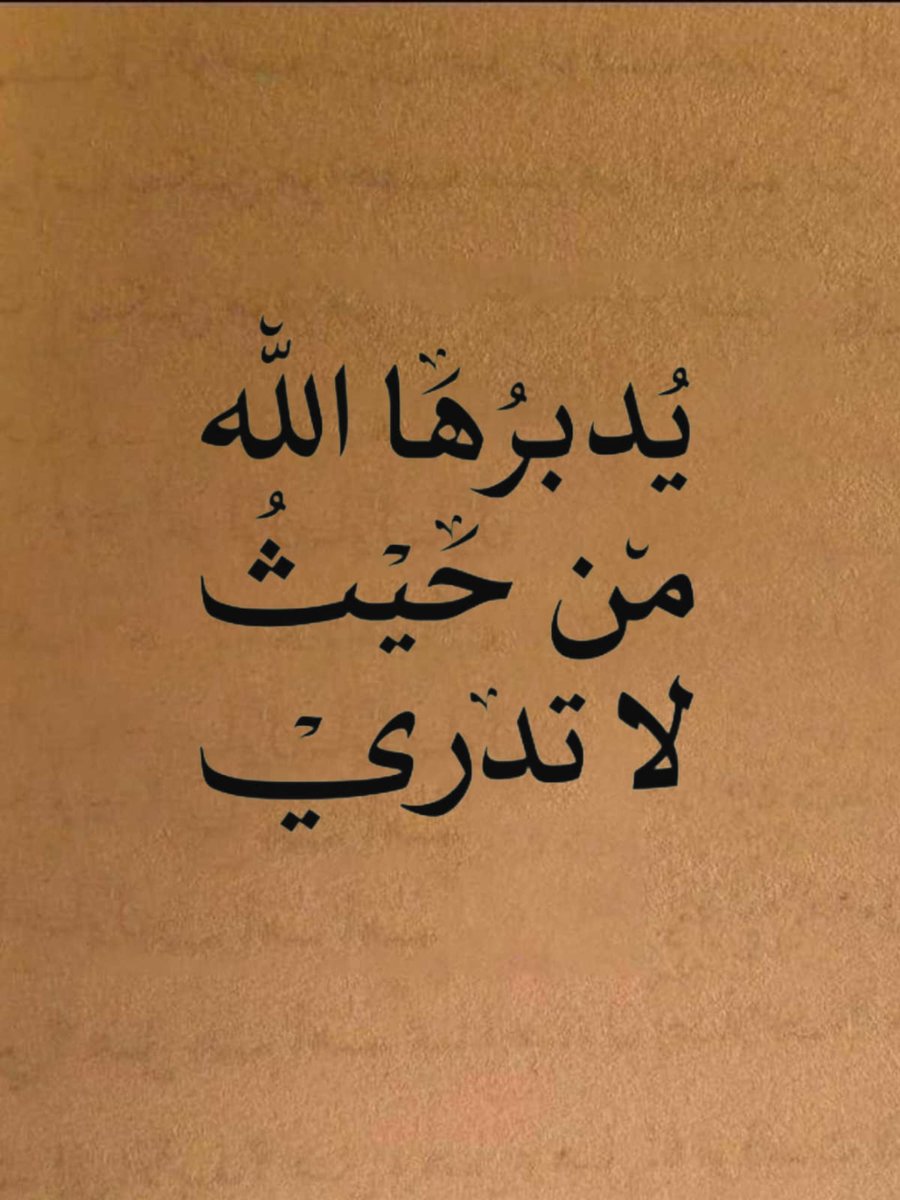 يُدبرُهَا اللّه
مّن حَيْثُ
لا تدري